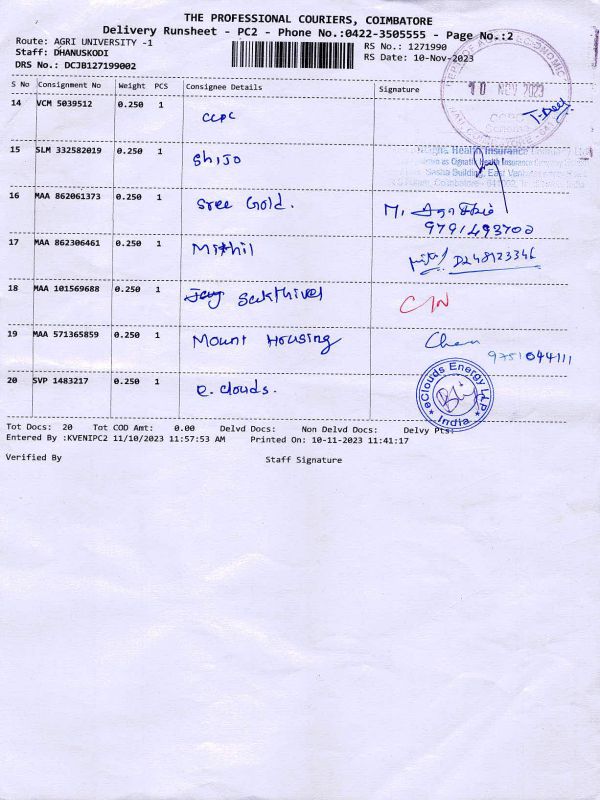 THE PROFESSIONAL COURIERS, COIMBATORE
Delivery Runsheet - PC2 - Phone No.:0422-3505555 - Page No.:2
Route: AGRI UNIVERSITY -1
RS No.: 1271990
Staff: DHANUSKODI
RS Date: 10-Nov-2023
DRS No.: DCJB127199002
10 NOV 2023
S No Consignment No Weight PCS Consignee Details Signature
14 VCM 5039512 0.250 1 CCPC
15 SLM 332582019 0.250 1 Shijo
Health Insurance Company
Health Insurance Company
16 MAA 862061373 0.250 1 Sree Gold. M.
9791493700
17 MAA 862306461 0.250 1 Mithil D248123346
18 MAA 101569688 0.250 1 Sakthivel C/N
19 MAA 571365859 0.250 1 Mount Housing
9751044111
20 SVP 1483217 0.250 1 e. clouds. eClouds Energy LLP India
Tot Docs: 20 Tot COD Amt: 0.00 Delvd Docs: Non Delvd Docs: Delvy Pts:
Entered By :KVENIPC2 11/10/2023 11:57:53 AM Printed On: 10-11-2023 11:41:17
Verified By Staff Signature